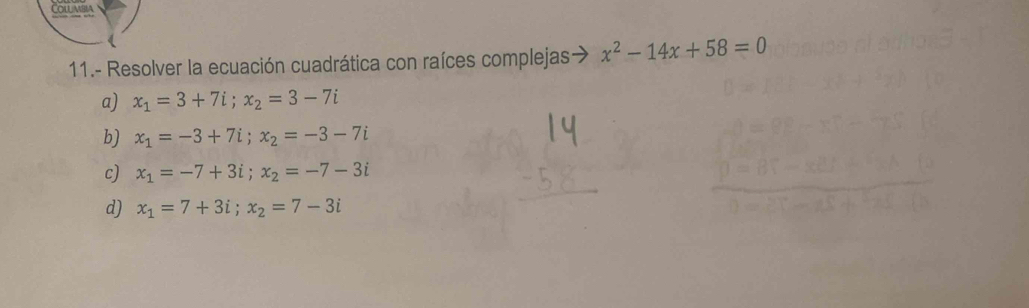 COLUMBIA
11.- Resolver la ecuación cuadrática con raíces complejas→ x² − 14x + 58 = 0
a) x₁ = 3 + 7i ; x₂ = 3 − 7i
b) x₁ = −3 + 7i ; x₂ = −3 − 7i
14
c) x₁ = −7 + 3i ; x₂ = −7 − 3i
-58
d) x₁ = 7 + 3i ; x₂ = 7 − 3i